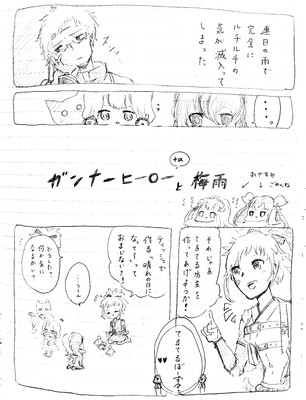 連日の雨で
完全に
ルチルチの
気が滅入って
しまった
・・・。
ガンナーヒーロー+α
と梅雨
おやすみ
ごめんね
それじゃあ
てるてる坊主を
作ってあげようか!
てるてるぼーず?
ティッシュで
作る「晴れの日に
なってー」って
おまじないさ!
・・・うーん
どうしたって
何か気に
なるかい?